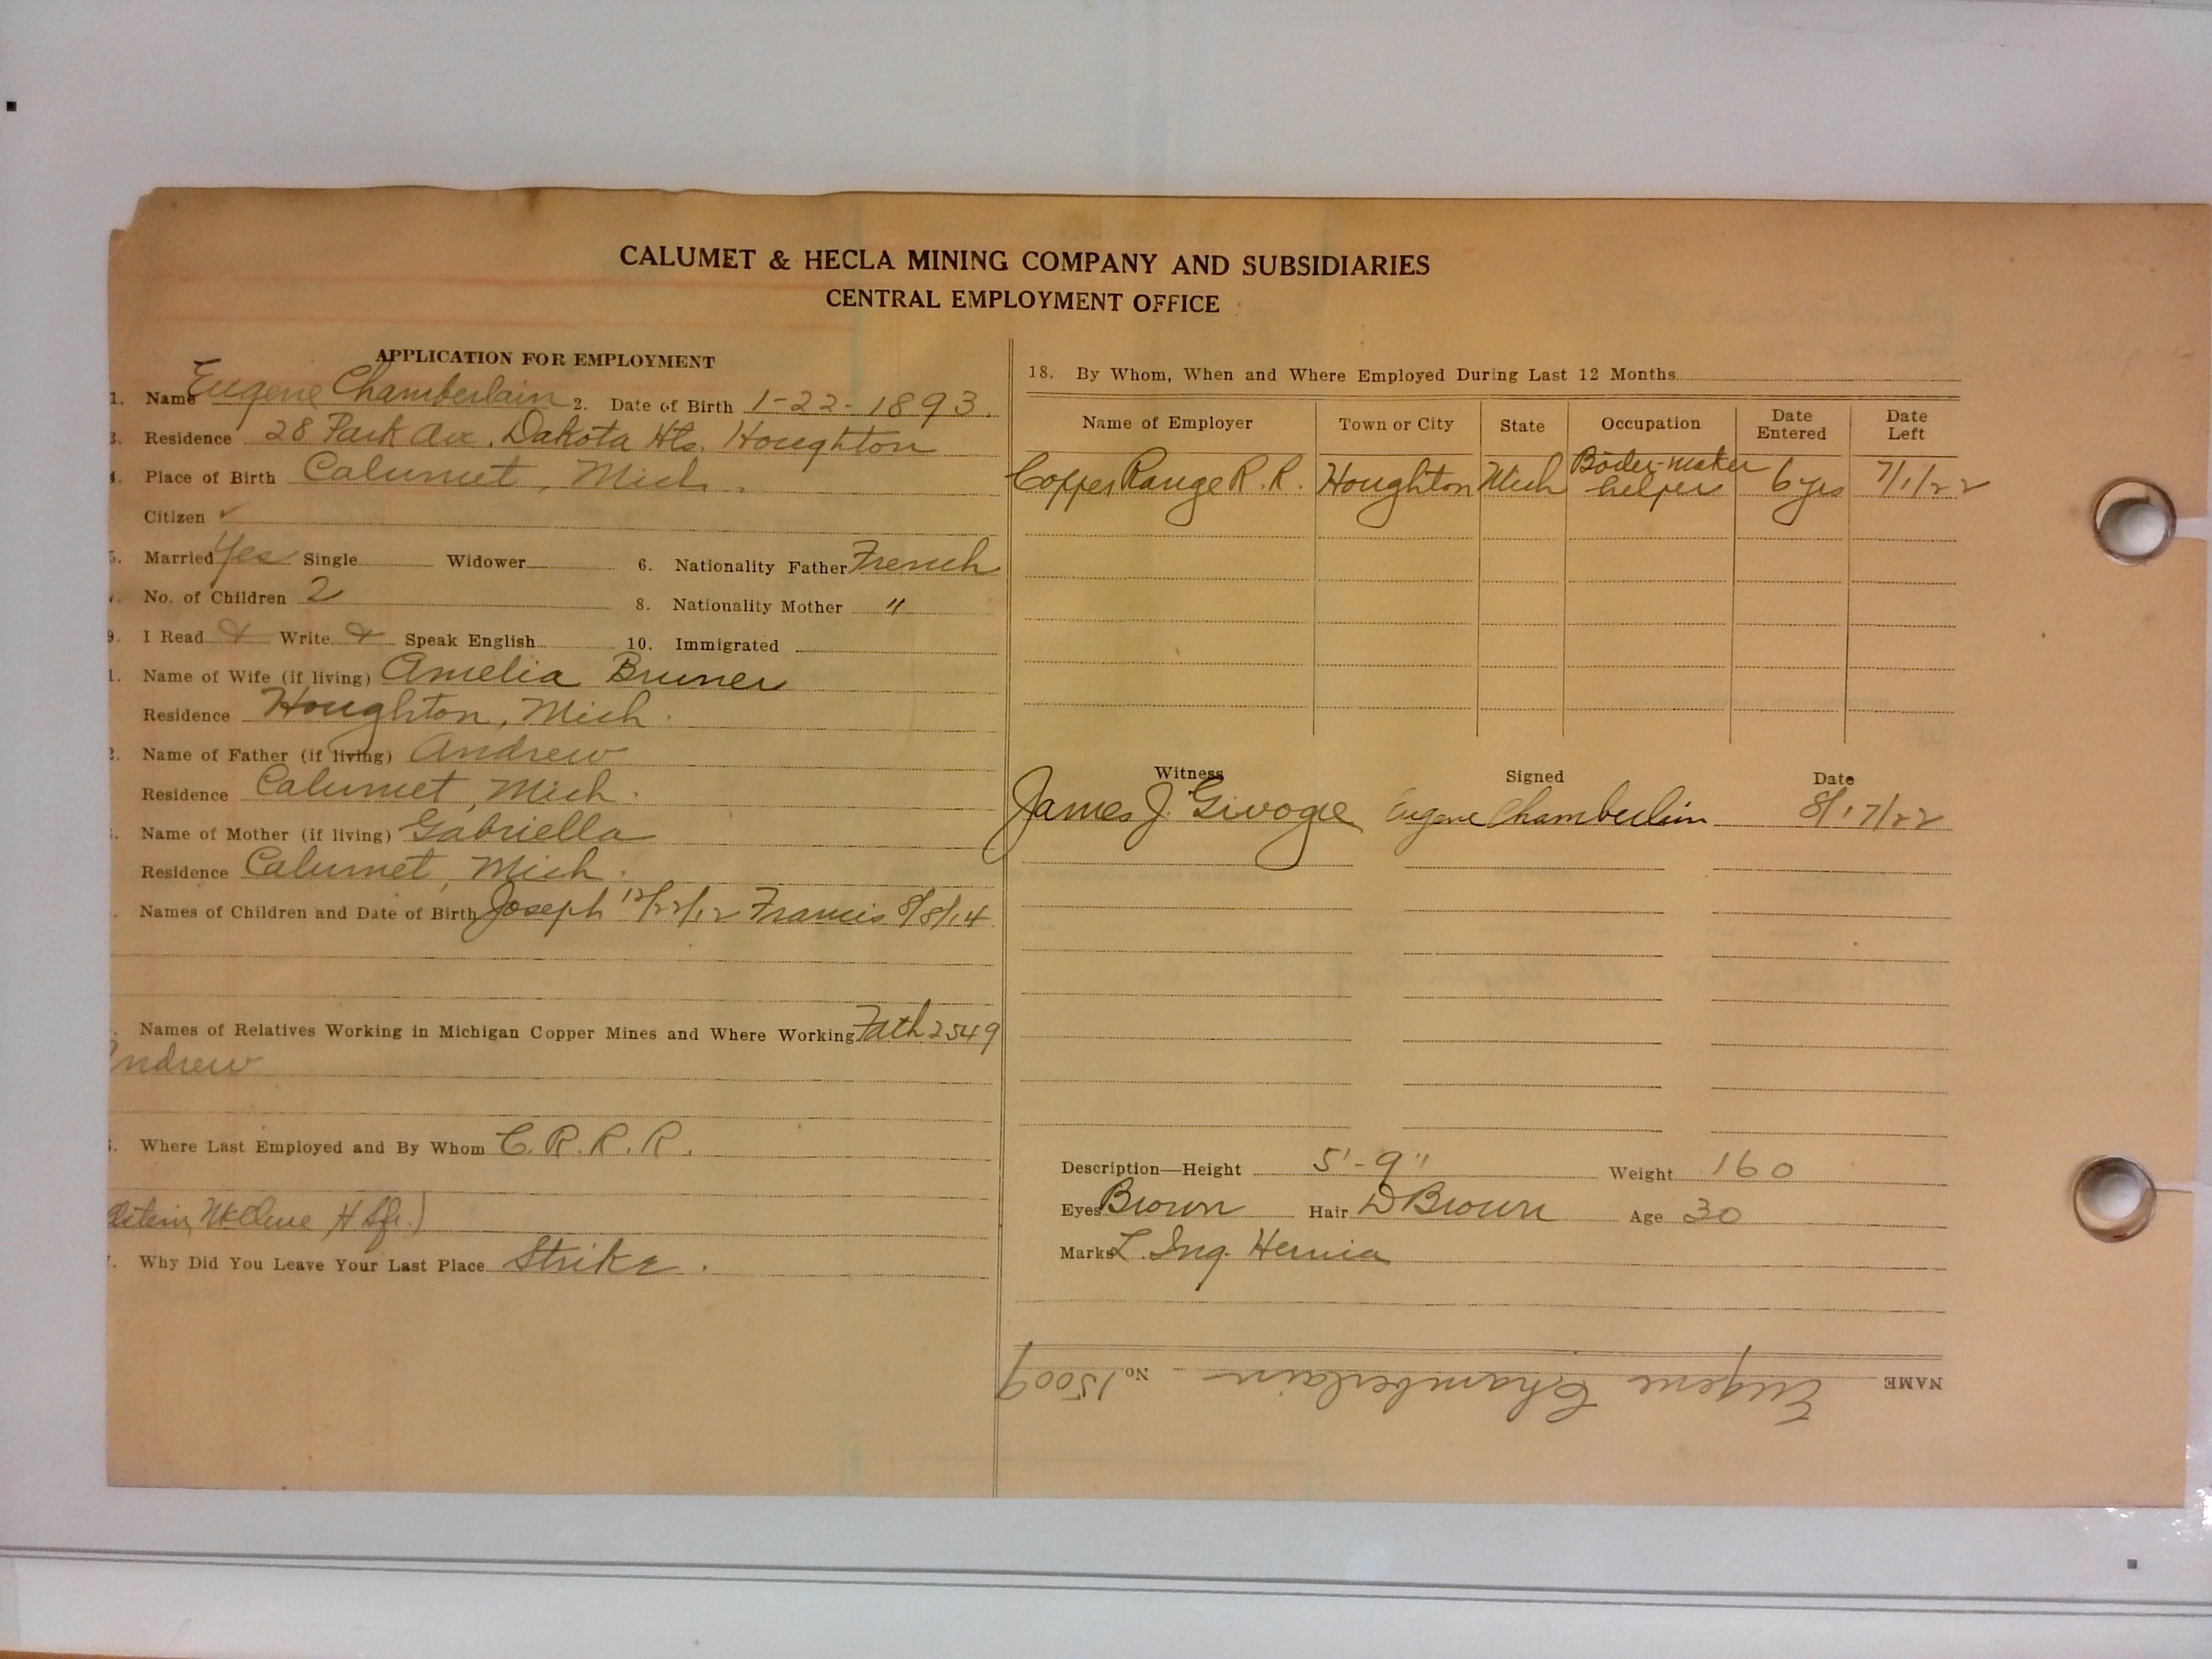 CALUMET & HECLA MINING COMPANY AND SUBSIDIARIES
CENTRAL EMPLOYMENT OFFICE
APPLICATION FOR EMPLOYMENT
1. Name Eugene Chamberlain 2. Date of Birth 1-22-1893.
3. Residence 28 Park Ave. Dakota Hts. Houghton
4. Place of Birth Calumet, Mich.
Citizen ✓
5. Married Yes Single Widower 6. Nationality Father French
No. of Children 2 8. Nationality Mother "
9. I Read & Write & Speak English 10. Immigrated
1. Name of Wife (if living) Amelia Bruner
Residence Houghton, Mich.
2. Name of Father (if living) Andrew
Residence Calumet, Mich.
Name of Mother (if living) Gabriella
Residence Calumet, Mich.
Names of Children and Date of Birth Joseph 12/22/12 Francis 8/8/14
Names of Relatives Working in Michigan Copper Mines and Where Working Fath 2549
Andrew
Where Last Employed and By Whom C.R.R.R.
Why Did You Leave Your Last Place Strike.
18. By Whom, When and Where Employed During Last 12 Months
Name of Employer Town or City State Occupation Date Entered Date Left
Copper Range R.R. Houghton Mich Boiler-maker helper 6 yrs 7/1/22
Witness Signed Date
James J. Givogre Eugene Chamberlain 8/17/22
Description—Height 5'-9" Weight 160
Eyes Brown Hair D Brown Age 30
Marks L. Ing. Hernia
NAME Eugene Chamberlain No. 15009